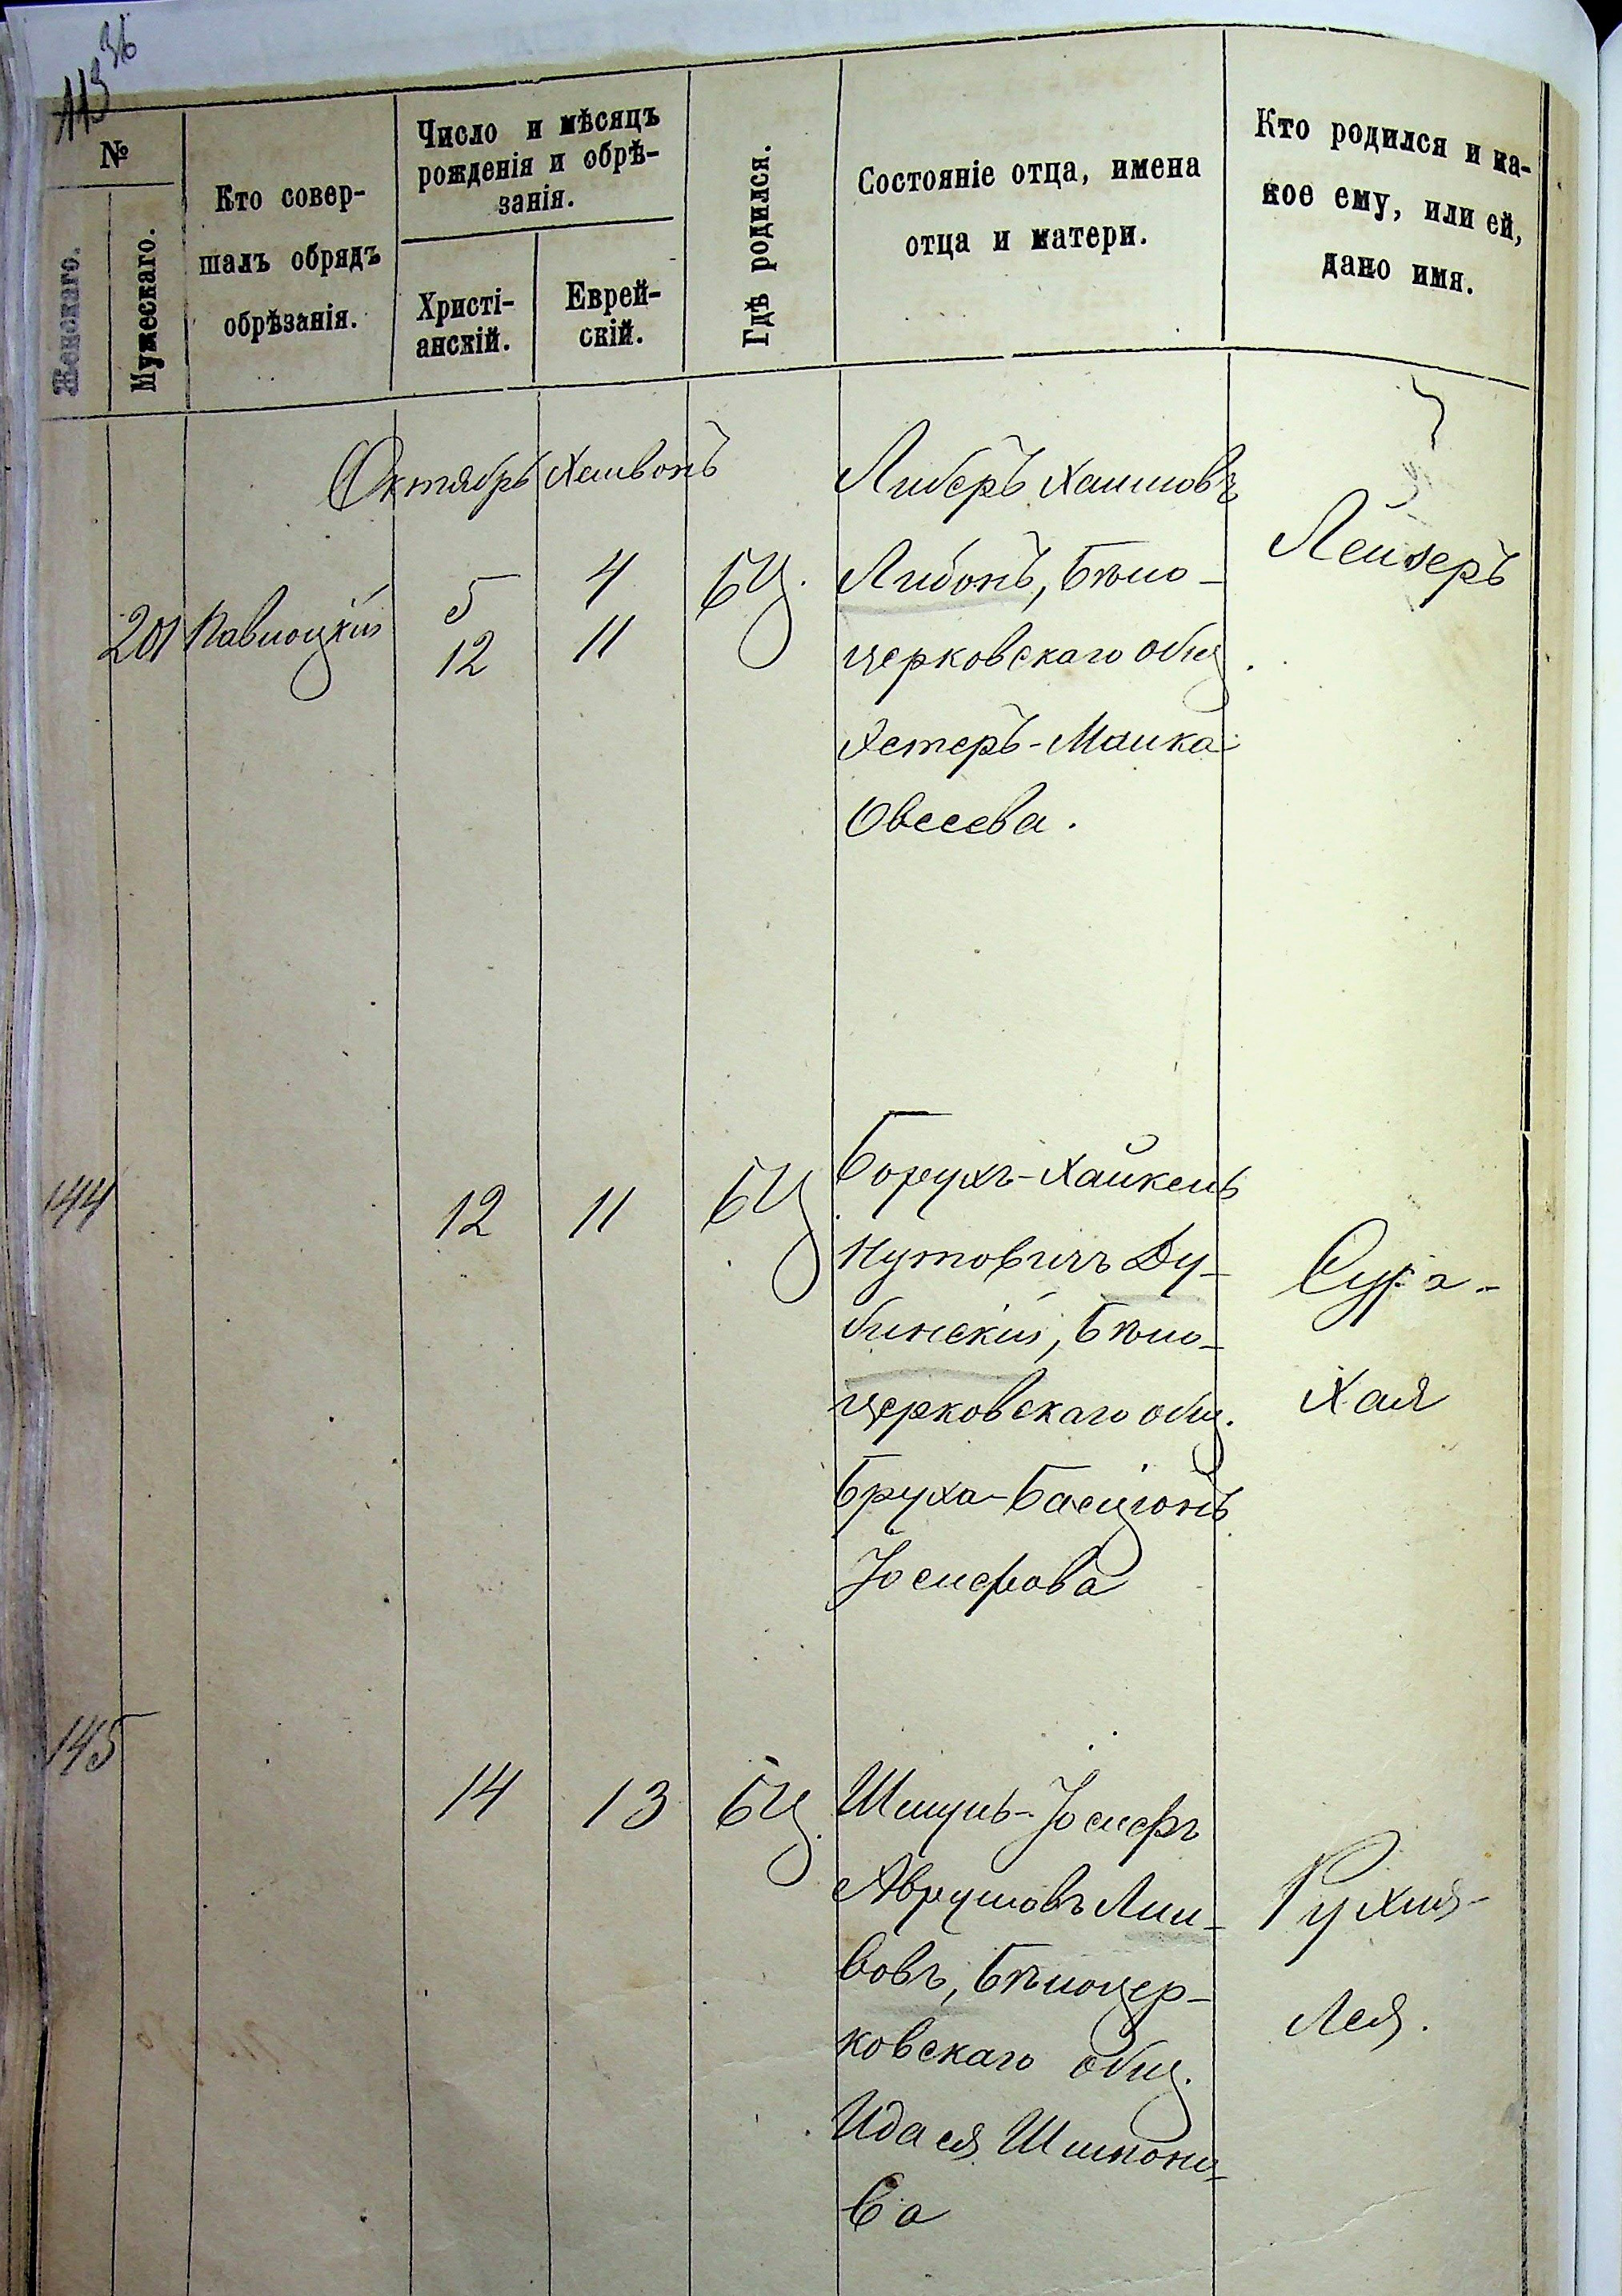 113 36
№
Женскаго.
Мужескаго.
Кто совер-
шалъ обрядъ
обрѣзанія.
Число и мѣсяцъ
рожденія и обрѣ-
занія.
Христі-
анскій.
Еврей-
скій.
Гдѣ родился.
Состояніе отца, имена
отца и матери.
Кто родился и ка-
кое ему, или ей,
дано имя.
Октябрь Хешвонъ
201 Павлоцкій
5
12
4
11
БЦ.
Либеръ Хаимовъ
Либонъ, Бѣло-
церковскаго общ.
Хстеръ-Малка
Овсеева.
Лейзеръ
144
12
11
БЦ.
Борухъ-Хайкель
Нутовичъ Ду-
бинскій, Бѣло-
церковскаго общ.
Бруха-Басціонъ
Іосифова
Сура-
Хая
145
14
13
БЦ.
Шмуль-Іосифъ
Аврумовъ
Бѣлоцер-
ковскаго общ.
Идася
ва
Рухля-
Лея.